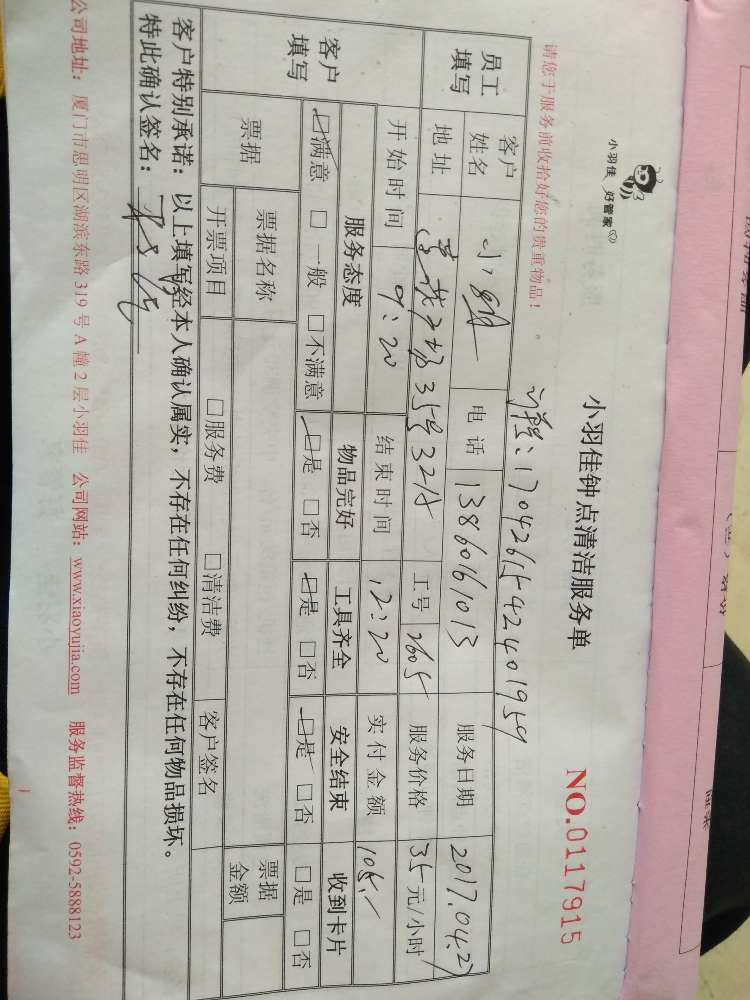 小羽佳 好管家
小羽佳钟点清洁服务单
NO.0117915
请您于服务前收拾好您的贵重物品!
1704261542401959
员工填写 客户姓名 小 电话 13860161013 服务日期 2017.04.27
地址 35号 工号 2605 服务价格 35元/小时
客户填写 开始时间 9:20 结束时间 12:20 实付金额 105.-
服务态度 物品完好 工具齐全 安全结束 收到卡片
☑满意 □一般 □不满意 ☑是 □否 ☑是 □否 ☑是 □否 □是 □否
票据 票据名称 票据金额
开票项目 □服务费 □清洁费 客户签名
客户特别承诺:以上填写经本人确认属实,不存在任何纠纷,不存在任何物品损坏。
特此确认签名:
公司地址:厦门市思明区湖滨东路319号A幢2层小羽佳 公司网站:www.xiaoyujia.com 服务监督热线:0592-5888123